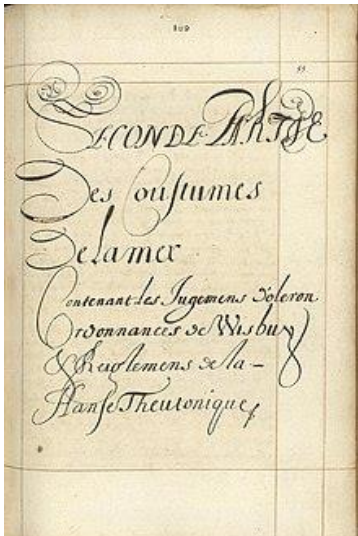 109
55
SECONDE PARTIE
Des Coustumes
De la mer
Contenant les Jugemens d'oleron
Ordonnances de Wisbuy
& Reiglemens de la -
Hanse Theutonique,